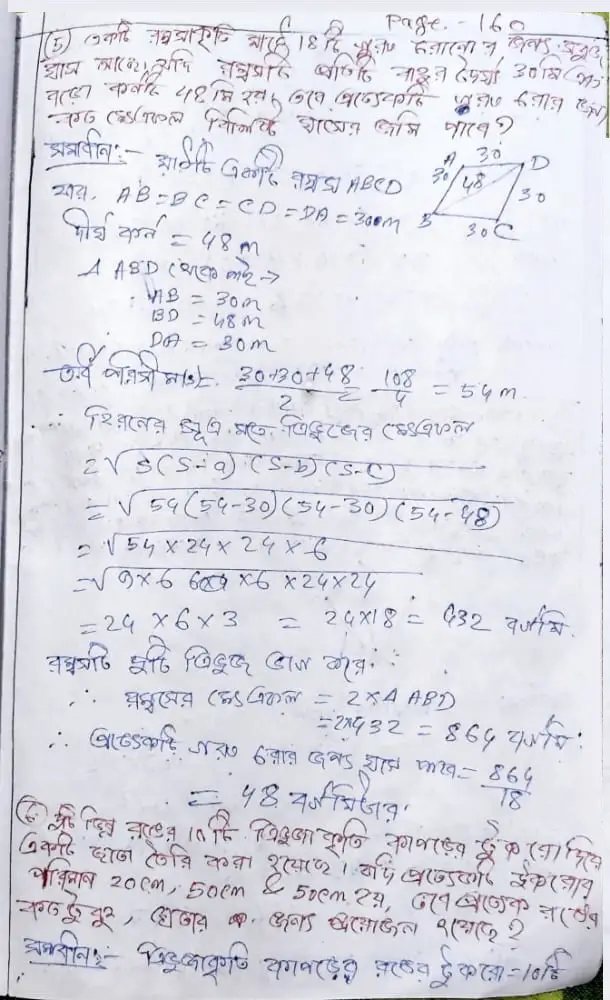 Page. - 160
(5) একটি রম্বসাকৃতি মাঠে 18 টি গরুর চরানোর জন্য সবুজ
ঘাস আছে। যদি রম্বসটির প্রতিটি বাহুর দৈর্ঘ্য 30 মি আৰু
বড়ো কর্ণটি 48 মি হয়, তবে প্রত্যেকটি গরুর চরার জন্য
কত ক্ষেত্রফল বিশিষ্ট ঘাসের জমি পাবে?
সমাধান:- মাঠটি একটি রম্বস ABCD
A 30 D
30 48 30
B 30 C
যার, AB = BC = CD = DA = 30m
দীর্ঘ কর্ন = 48 m
Δ ABD থেকে পাই →
AB = 30m
BD = 48m
DA = 30m
অর্ধ পরিসীমা = 30+30+48 / 2 = 108 / 2 = 54 m
∴ হিরনের সূত্র মতে ত্রিভুজের ক্ষেত্রফল
= √ S(S-a) (S-b) (S-c)
= √ 54 (54-30) (54-30) (54-48)
= √ 54 × 24 × 24 × 6
= √ 9×6 × 6 × 24 × 24
= 24 × 6 × 3 = 24×18 = 432 বর্গমি.
রম্বসটি দুটি ত্রিভুজে ভাগ করে.
∴ রম্বসের ক্ষেত্রফল = 2 × Δ ABD
= 2×432 = 864 বর্গমি.
∴ প্রত্যেকটি গরুর চরার জন্য ঘাস পাবে = 864 / 18
= 48 বর্গমিটার.
(6) দুটি ভিন্ন রঙের 10 টি ত্রিভুজাকৃতি কাপড়ের টুকরো দিয়ে
একটি ছাতা তৈরি করা হয়েছে। যদি প্রত্যেকটি টুকরোর
পরিমান 20cm, 50cm & 50cm হয়, তবে প্রত্যেক রঙের
কতটুকু, ছাতার জন্য প্রয়োজন হয়েছে?
সমাধান:- ত্রিভুজাকৃতি কাপড়ের রঙের টুকরো = 10টি